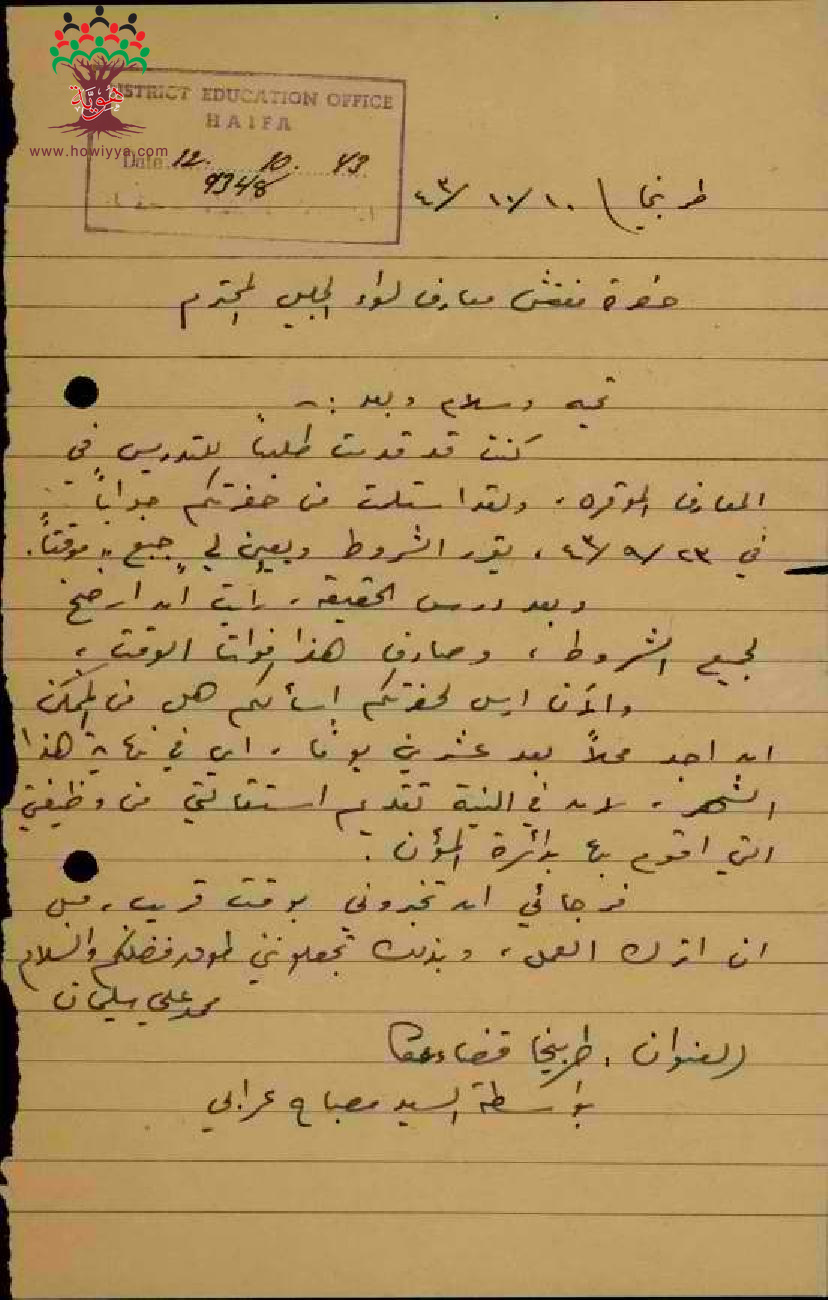 هويّة
www.howiyya.com
DISTRICT EDUCATION OFFICE
HAIFA
Date 12. 10. 43
9348
طربيخا / ١٠/١٠/٤٣
حضرة مفتش معارف لواء الجليل المحترم
تحيه وسلام وبعد :-
كنت قد قدمت طلباً للتدريس في
المعارف الموقره، ولقد استلمت من حضرتكم جواباً
في ٢٣/٩/٤٣، يقرر الشروط ويعين لي جميع موقتاً.
وبعد درس الحقيقه، رايت ان ارضخ
لجميع الشروط، وصادف هذا فوات الوقت،
والآن ارسل لحضرتكم اسألكم هل من الممكن
ان اجد محلاً بعد عشرين يوماً، اي في نهاية هذا
الشهر، لان في النية تقديم استقالتي من وظيفتي
التي اقوم بها بدائرة المؤن.
فرجائي ان تخبروني بوقت قريب، قبل
ان اترك العمل، وبذلك تجعلونني طوع فضلكم والسلام
محمد علي سليمان
العنوان. طربيخا قضاء عكا
بواسطة السيد مصباح عرابي